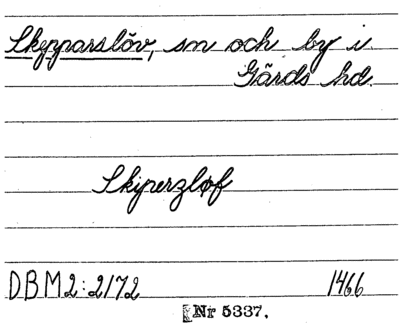 Skepparslöv, sn och by i
Gärds hd.
Skiperzløf
DBM2:2172 1466
Nr 5337.